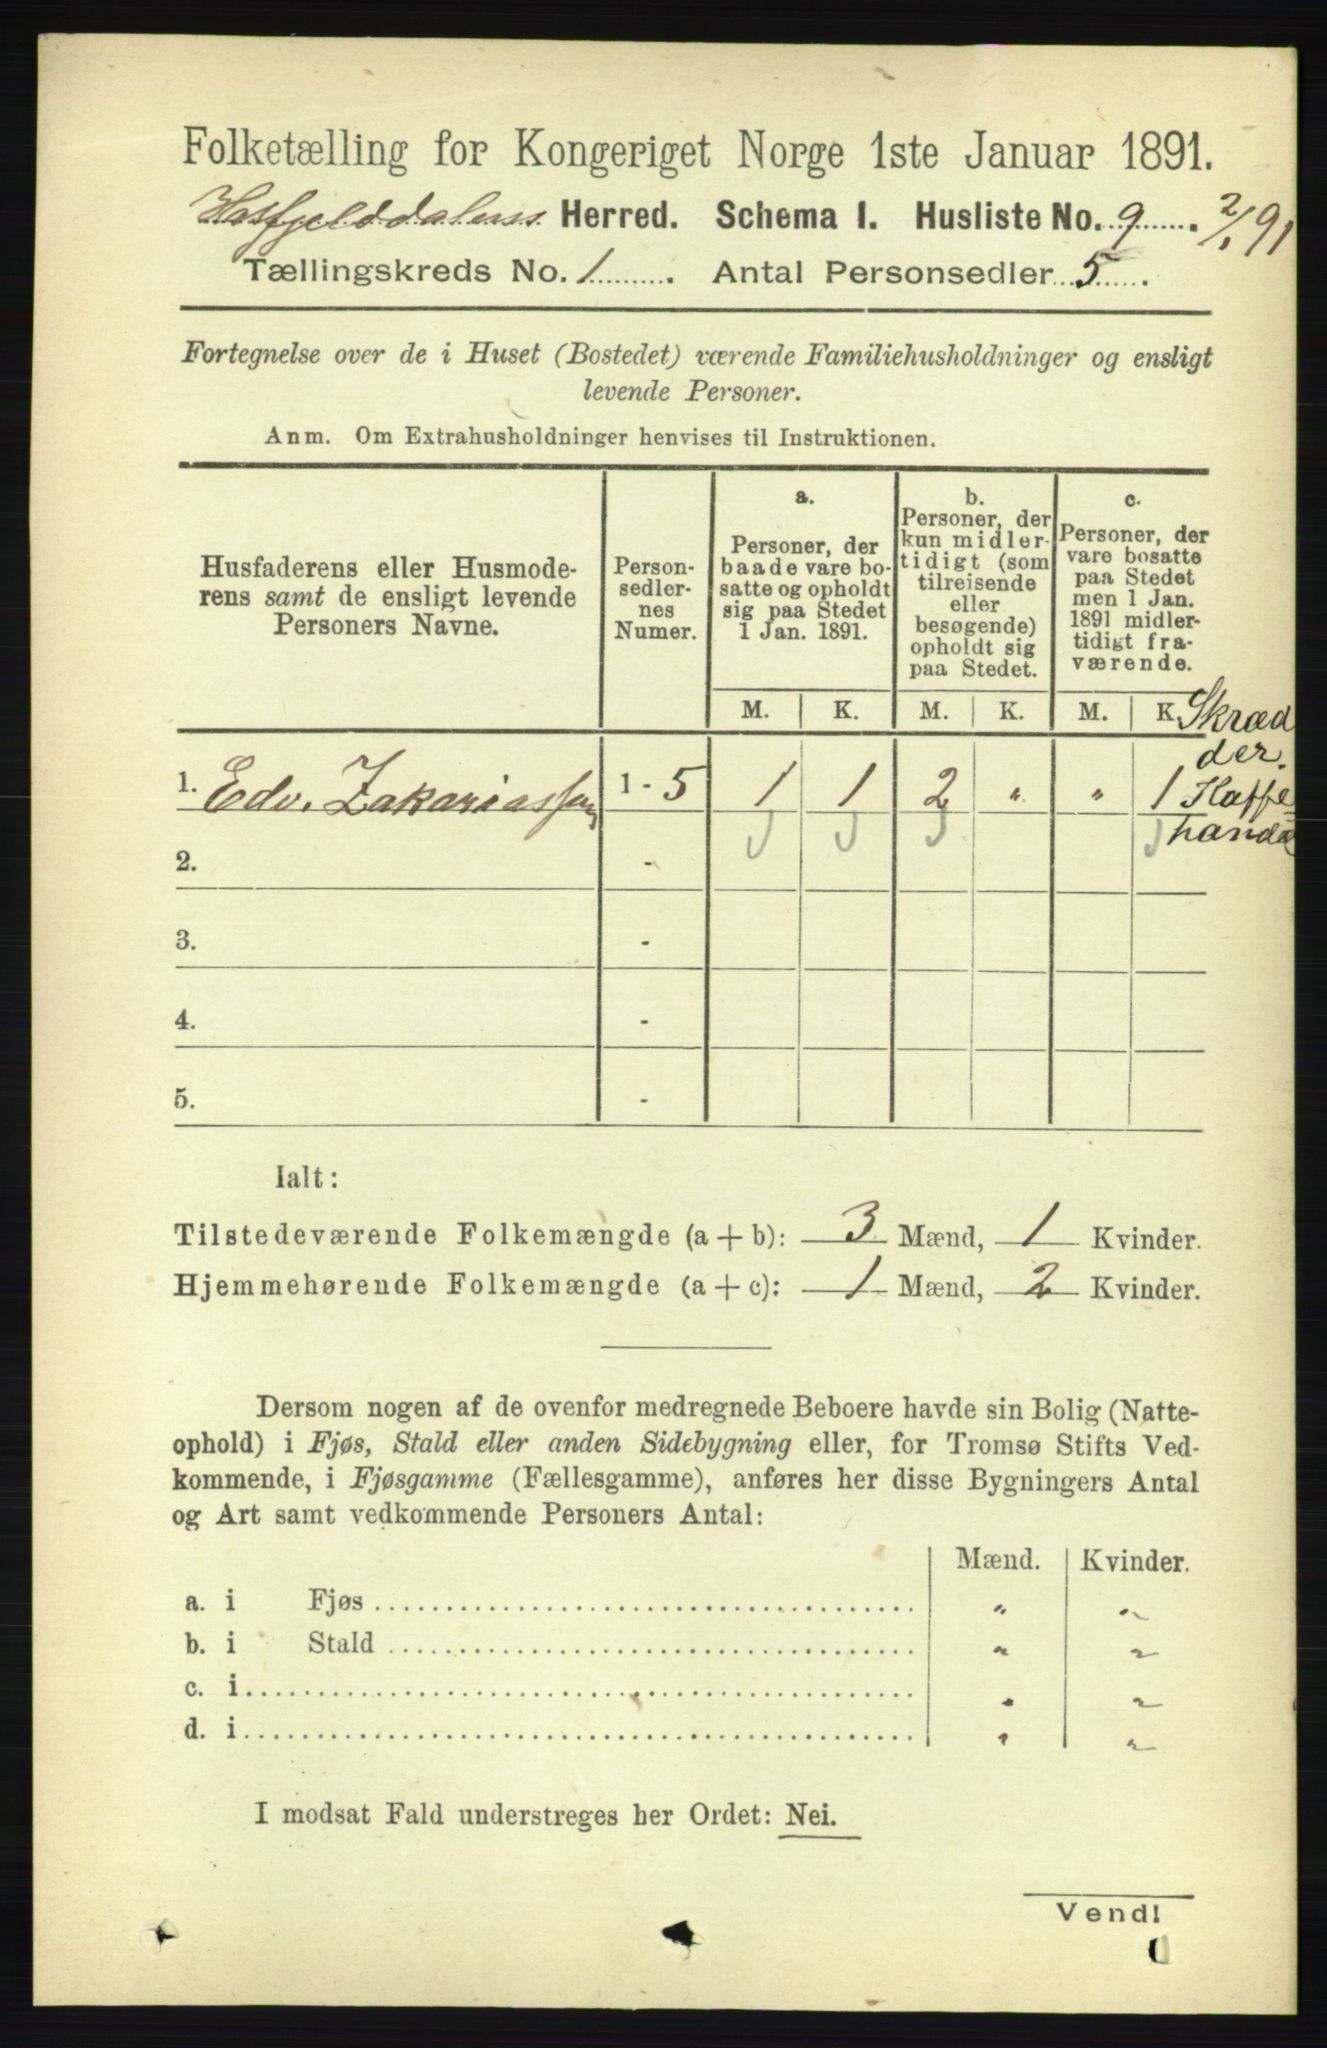 Folketælling for Kongeriget Norge 1ste Januar 1891.
Hatfjelddalens Herred. Schema I. Husliste No. 9. 2/1 91
Tællingskreds No. 1. Antal Personsedler 5.
Fortegnelse over de i Huset (Bostedet) værende Familiehusholdninger og ensligt
levende Personer.
Anm. Om Extrahusholdninger henvises til Instruktionen.
Husfaderens eller Husmode-
rens samt de ensligt levende
Personers Navne.
Person-
sedler-
nes
Numer.
a.
Personer, der
baade vare bo-
satte og opholdt
sig paa Stedet
1 Jan. 1891.
b.
Personer, der
kun midler-
tidigt (som
tilreisende
eller
besøgende)
opholdt sig
paa Stedet.
c.
Personer, der
vare bosatte
paa Stedet
men 1 Jan.
1891 midler-
tidigt fra-
værende.
M. K. M. K. M. K.
Skræd
der.
Kaffe
1. Edv. Zakariassen 1 - 5 1 1 2 " " 1
2. -
3. -
4. -
5. -
Ialt:
Tilstedeværende Folkemængde (a + b): 3 Mænd, 1 Kvinder.
Hjemmehørende Folkemængde (a + c): 1 Mænd, 2 Kvinder.
Dersom nogen af de ovenfor medregnede Beboere havde sin Bolig (Natte-
ophold) i Fjøs, Stald eller anden Sidebygning eller, for Tromsø Stifts Ved-
kommende, i Fjøsgamme (Fællesgamme), anføres her disse Bygningers Antal
og Art samt vedkommende Personers Antal:
Mænd. Kvinder.
a. i Fjøs " "
b. i Stald " "
c. i " "
d. i " "
I modsat Fald understreges her Ordet: Nei.
Vend!